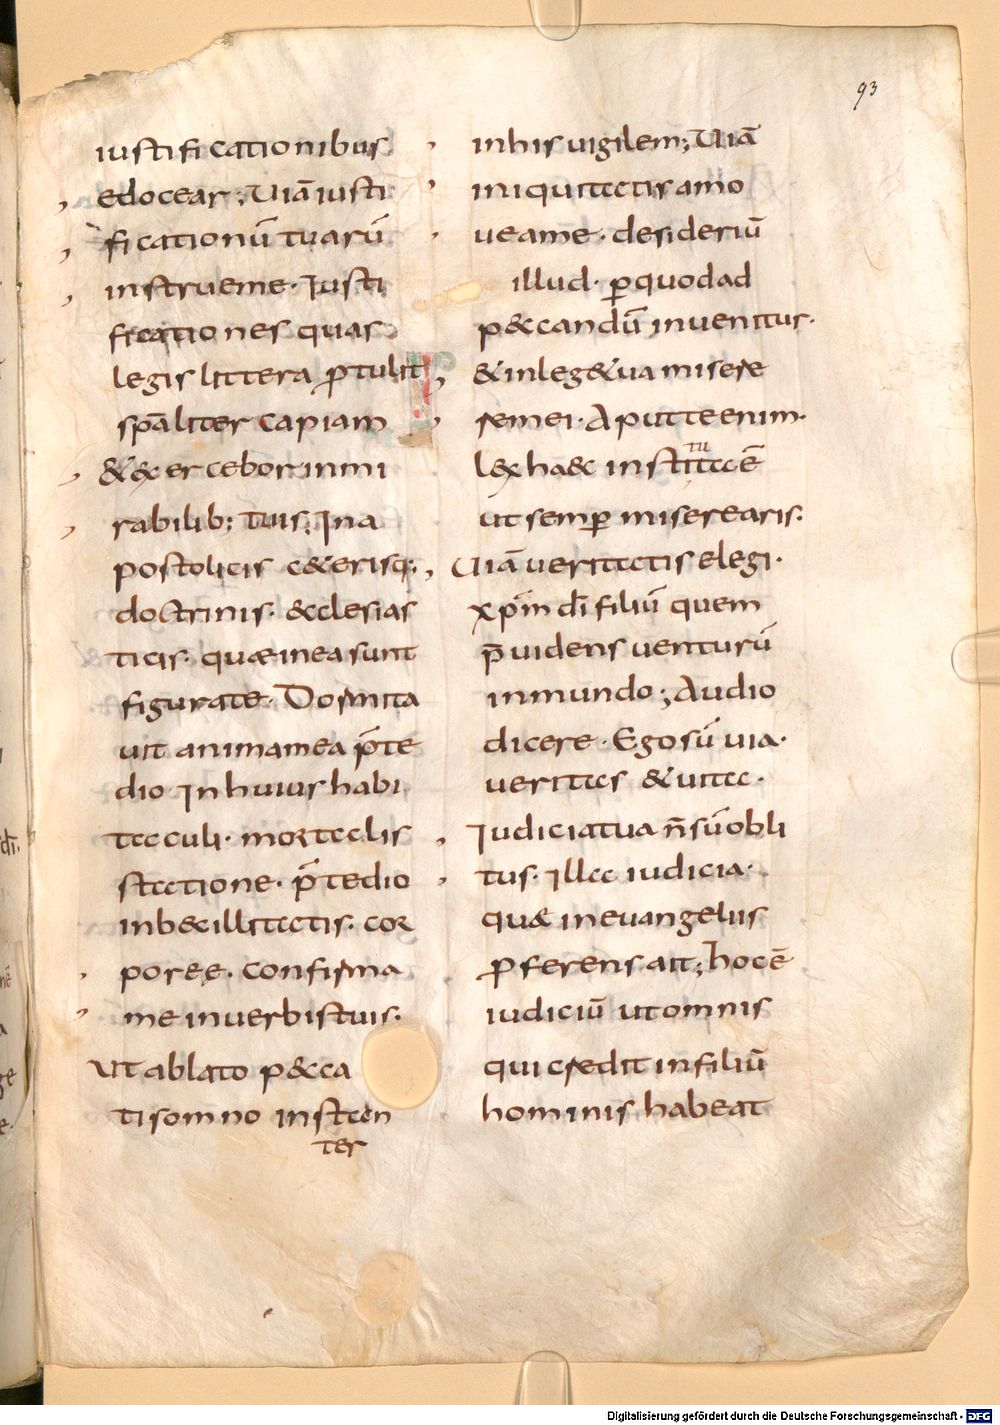 93
iustificationibus
edocear; Uiā iusti
ficationū tuarū
instrue me· Iusti
ficationes quas
legis littera p̄tulit
sp̄aliter capiam
& exercebor in mi
rabilib; tuis; In a
postolicis c&erisq;
doctrinis· &clesias
ticis· quæ in ea sunt
figurate· Dormita
uit anima mea p̄ te
dio In huius habi
taculi· mortalis
statione· p̄ tedio
inb&cillitatis· cor
poreę· Confirma
me in uerbis tuis·
Ut ablato p&ca
ti somno instan
ter
in his uigilem; Uiā
iniquitatis amo
ue a me· desideriū
illud· ꝑ quod ad
p&candū inuenitur·
& in leg& ua misere
re mei· Aput te enim·
l&x ha&c in statuta ē
ut semꝑ miserearis·
Uiā ueritatis elegi·
xp̄m dī filiū quem
p̄uidens uenturū
in mundo; Audio
dicere· Ego sū uia·
ueritas & uita·
Iudicia tua n̄ sū obli
tus· Illa iudicia·
quæ in euangeliis
ꝓferens ait; hoc ē
iudiciū ut omnis
qui credit in filiū
hominis habeat
Digitalisierung gefördert durch die Deutsche Forschungsgemeinschaft - DFG